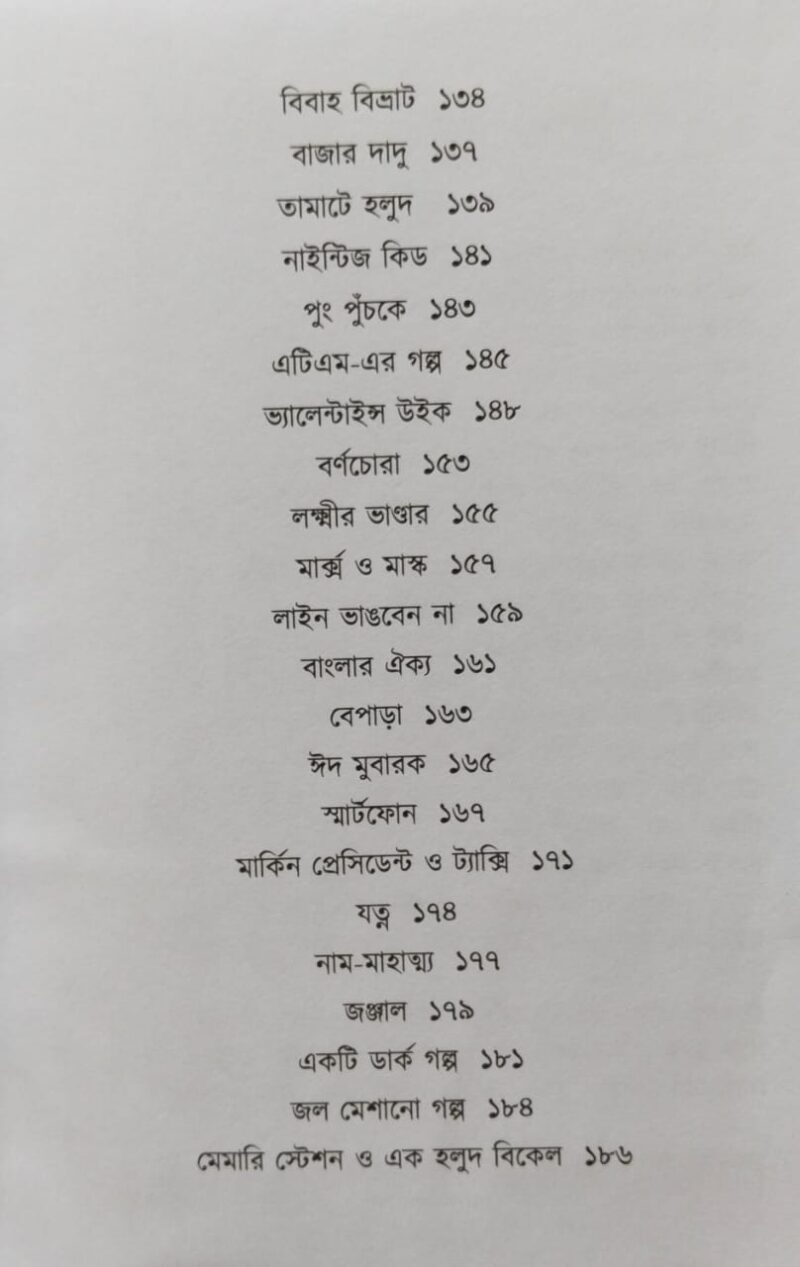 বিবাহ বিভ্রাট ১৩৪
বাজার দাদু ১৩৭
তামাটে হলুদ ১৩৯
নাইন্টিজ কিড ১৪১
পুং পুঁচকে ১৪৩
এটিএম-এর গল্প ১৪৫
ভ্যালেন্টাইন্স উইক ১৪৮
বর্ণচোরা ১৫৩
লক্ষ্মীর ভাণ্ডার ১৫৫
মার্ক্স ও মাস্ক ১৫৭
লাইন ভাঙবেন না ১৫৯
বাংলার ঐক্য ১৬১
বেপাড়া ১৬৩
ঈদ মুবারক ১৬৫
স্মার্টফোন ১৬৭
মার্কিন প্রেসিডেন্ট ও ট্যাক্সি ১৭১
যত্ন ১৭৪
নাম-মাহাত্ম্য ১৭৭
জঞ্জাল ১৭৯
একটি ডার্ক গল্প ১৮১
জল মেশানো গল্প ১৮৪
মেমারি স্টেশন ও এক হলুদ বিকেল ১৮৬